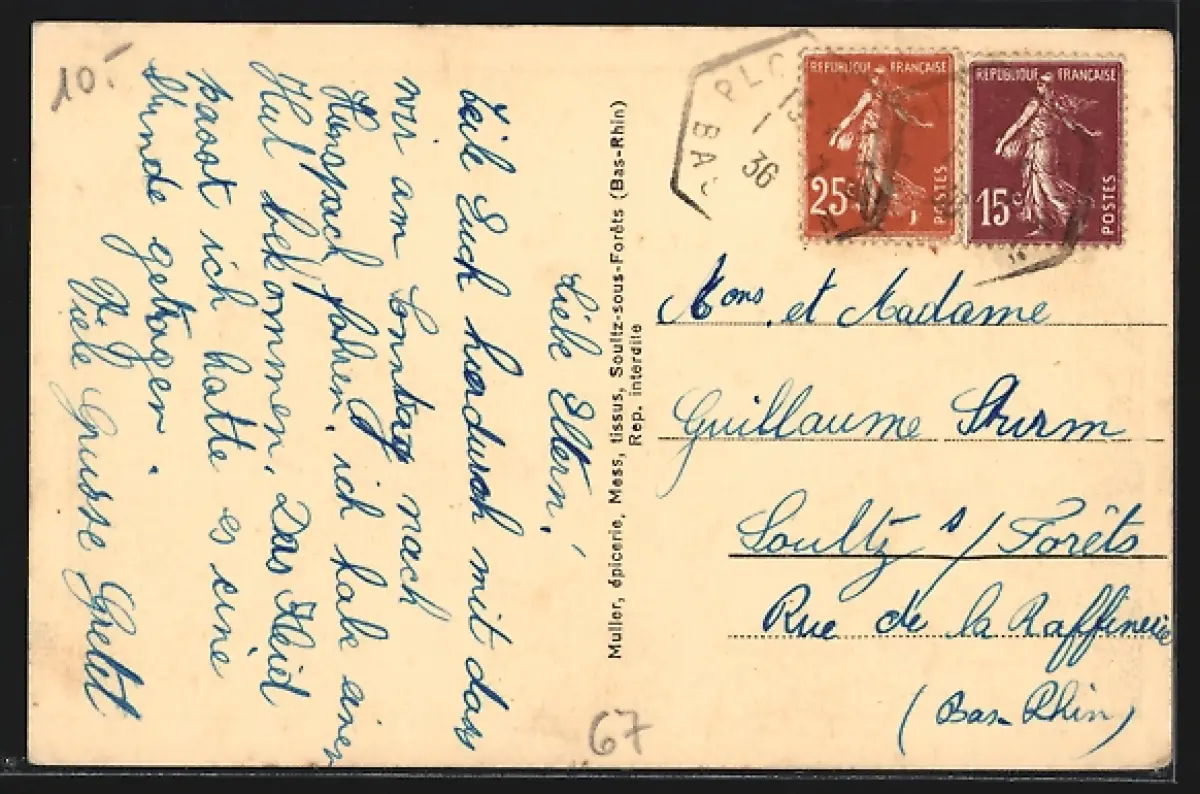 10.-
Liebe Eltern!
Teile Euch hierdurch mit dass
wir am Sonntag nach
Hunspach fahren, ich habe einen
Hut bekommen. Das Kleid
passt ich hatte es eine
Stunde getragen.
Viele Grüsse Gretel
Muller, épicerie, Mess, tissus, Soultz-sous-Forêts (Bas-Rhin)
Rep. interdite
67
PLO
BAS
13
1
36
REPUBLIQUE FRANÇAISE
25c
POSTES
REPUBLIQUE FRANÇAISE
15c
POSTES
Mons. et Madame
Guillaume Sturm
Soultz s/Forêts
Rue de la Raffinerie
(Bas-Rhin)